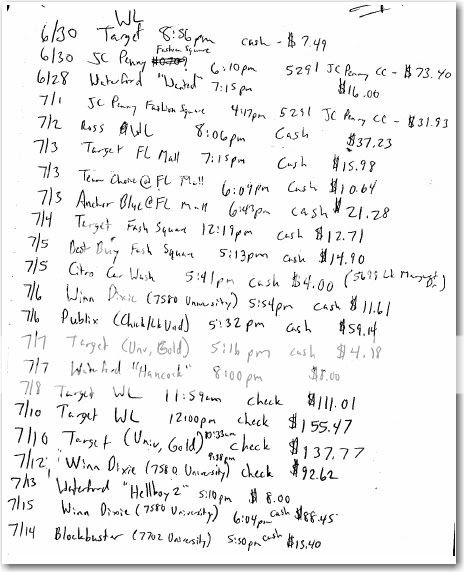 WL
6/30 Target 8:56pm cash - $7.49
Fashion Square
6/30 JC Penny 6:10pm 5291 JC Penny CC - $73.40
6/28 Waterford "Wanted" 7:15pm $16.00
7/1 JC Penny Fashion Square 4:47pm 5291 JC Penny CC - $31.93
7/2 Ross @WL 8:06pm Cash $37.23
7/3 Target FL Mall 7:15pm Cash $15.98
7/3 Team Choice @ FL Mall 6:09pm Cash $10.64
7/3 Anchor Blue @ FL Mall 6:43pm cash $21.28
7/4 Target Fash Square 12:19pm cash $12.71
7/5 Best Buy Fash Square 5:13pm cash $14.90
7/5 Citro Car Wash 5:41pm cash $4.00 (5699 Lk Margaret D.)
7/6 Winn Dixie (7580 University) 5:54pm cash $11.61
7/6 Publix (Chick/Lk Und) 5:32pm cash $59.14
7/7 Target (Univ, Gold) 5:16pm cash $4.18
7/7 Waterford "Hancock" 8:00pm $8.00
7/8 Target WL 11:59am check $111.01
7/10 Target WL 12:00pm check $155.47
7/10 Target (Univ, Gold) 10:33am check $137.77
7/12 Winn Dixie (7580 University) 9:38pm check $92.62
7/13 Waterford "Hellboy 2" 5:10pm $8.00
7/15 Winn Dixie (7580 University) 6:04pm cash $88.45
7/14 Blockbuster (7702 University) 5:50pm cash $15.40